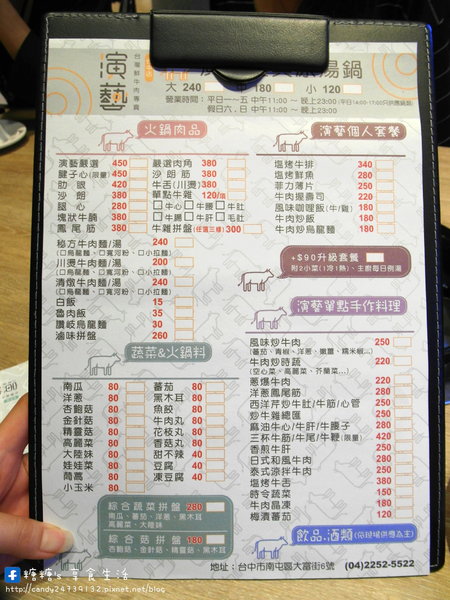 演藝
台灣鮮牛肉專賣
湯鍋
大 240 180 小 120
營業時間：平日一~五 中午11:00 ~ 晚上23:00
假日六、日 中午11:00 ~ 晚上23:00
火鍋肉品
演藝嚴選 450
腱子心(限量) 450
肋眼 420
沙朗 380
腿心 280
塊狀牛腩 380
鳳尾筋 380
嚴選肉角 380
沙朗筋 380
牛舌(川燙) 380
單點牛雜 120/項
口牛心 口牛腰 口牛肚
口牛腸 口牛肝 口毛肚
牛雜拼盤(任選三樣) 300
秘方牛肉麵/湯 240
(口烏龍麵、口寬河粉、口小拉麵)
川燙牛肉麵/湯 200
(口烏龍麵、口寬河粉、口小拉麵)
清燉牛肉麵/湯 240
(口烏龍麵、口寬河粉、口小拉麵)
白飯 15
魯肉飯 35
讚岐烏龍麵 30
滷味拼盤 260
蔬菜&火鍋料
南瓜 80
洋蔥 80
杏鮑菇 80
金針菇 80
精靈菇 80
高麗菜 80
大陸妹 80
娃娃菜 80
茼蒿 80
小玉米 80
蕃茄 80
黑木耳 80
魚餃 80
牛肉丸 80
花枝丸 80
香菇丸 80
甜不辣 40
豆腐 40
凍豆腐 40
綜合蔬菜拼盤 280
南瓜、蕃茄、洋蔥、黑木耳
高麗菜、大陸妹
綜合菇拼盤 180
杏鮑菇、金針菇、精靈菇、黑木耳
演藝個人套餐
塩烤牛排 340
塩烤鮮魚 280
菲力薄片 280
牛肉握壽司 220
風味咖哩飯(牛/雞) 180
牛肉炒飯 180
牛肉炒烏龍麵 180
+$90升級套餐
附2小菜(1冷1熱)、主廚每日例湯
演藝單點手作料理
風味炒牛肉 250
(蕃茄、青椒、洋蔥、嫩薑、糯米椒...)
牛肉炒時蔬 220
(空心菜、高麗菜、芥蘭菜...)
蔥爆牛肉 250
洋蔥鳳尾筋 250
西洋芹炒牛肚/牛筋/心管 250
炒牛雜總匯 280
麻油牛心/牛肝/牛腰子 280
三杯牛筋/牛尾/牛鞭(限量) 420
香煎牛肝 250
日式和風牛肉 250
泰式涼拌牛肉 250
塩烤牛舌 380
時令蔬菜 150
牛肉晶凍 120
梅漬蕃茄 120
飲品、酒類(依現場供應為主)
地址：台中市南屯區大富街6號 (04)2252-5522
糖糖's 享食生活
http://candy24739132.pixnet.net/blog